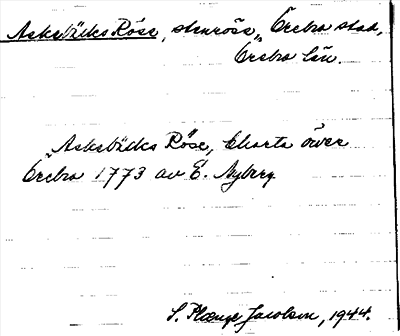 Askebäcks Röse, stenröse, Örebro stad,
Örebro län.
"Askebäcks Röse, Charta över
Örebro 1773 av E. Nyberg
S. Plænge Jacobson, 1944.